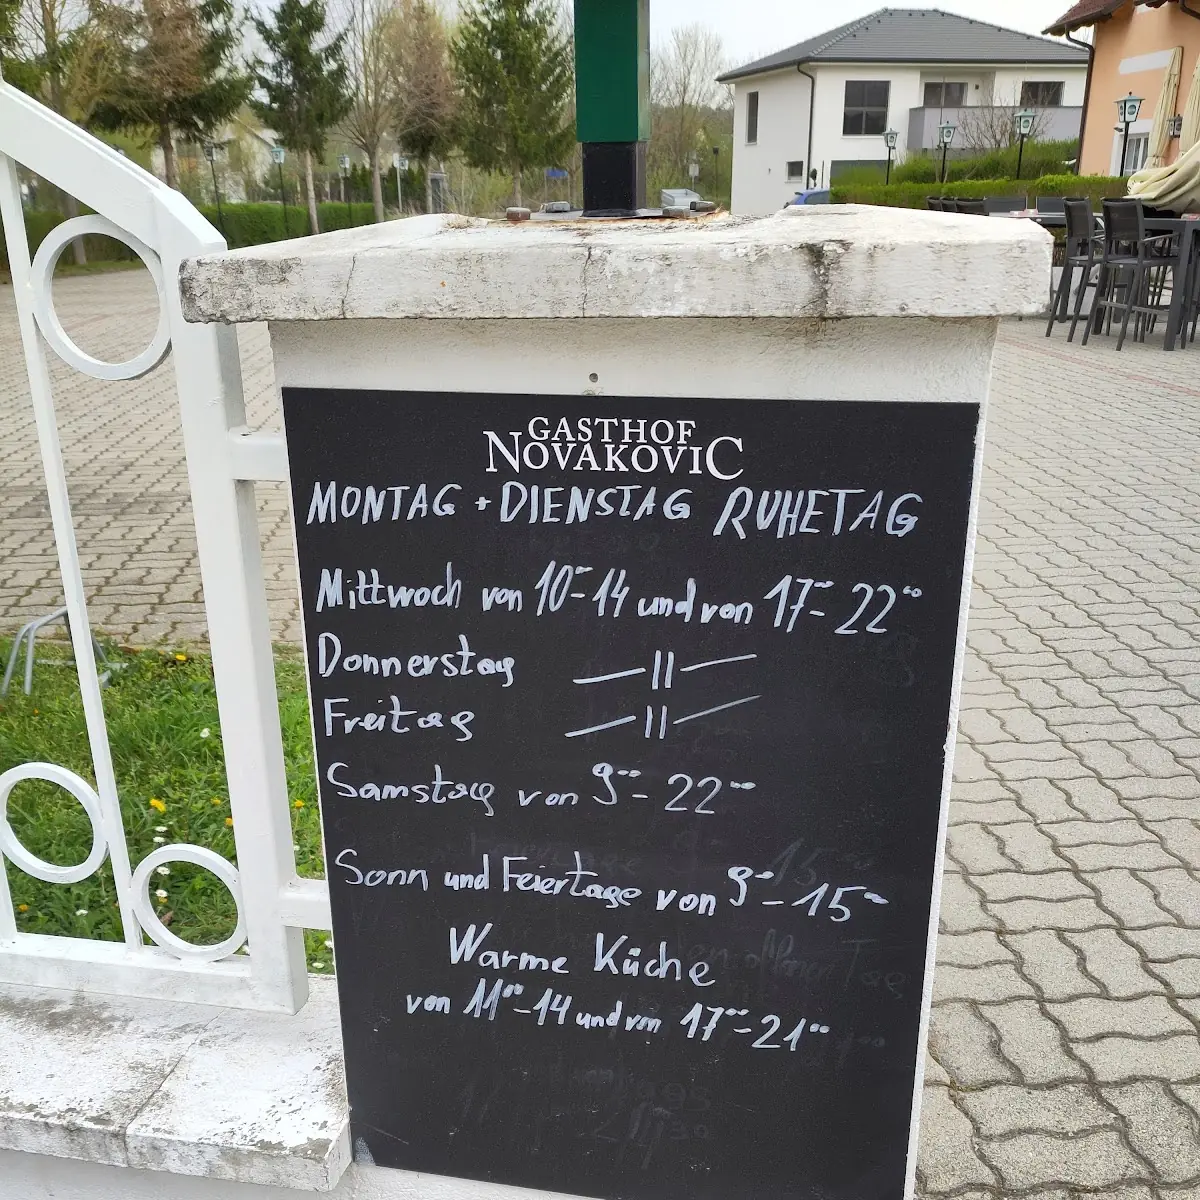 GASTHOF
NOVAKOVIC
MONTAG + DIENSTAG RUHETAG
Mittwoch von 10⁰⁰-14 und von 17⁰⁰-22⁰⁰
Donnerstag —||—
Freitag —||—
Samstag von 9⁰⁰-22⁰⁰
Sonn und Feiertage von 9⁰⁰-15⁰⁰
Warme Küche
von 11⁰⁰-14 und von 17⁰⁰-21⁰⁰